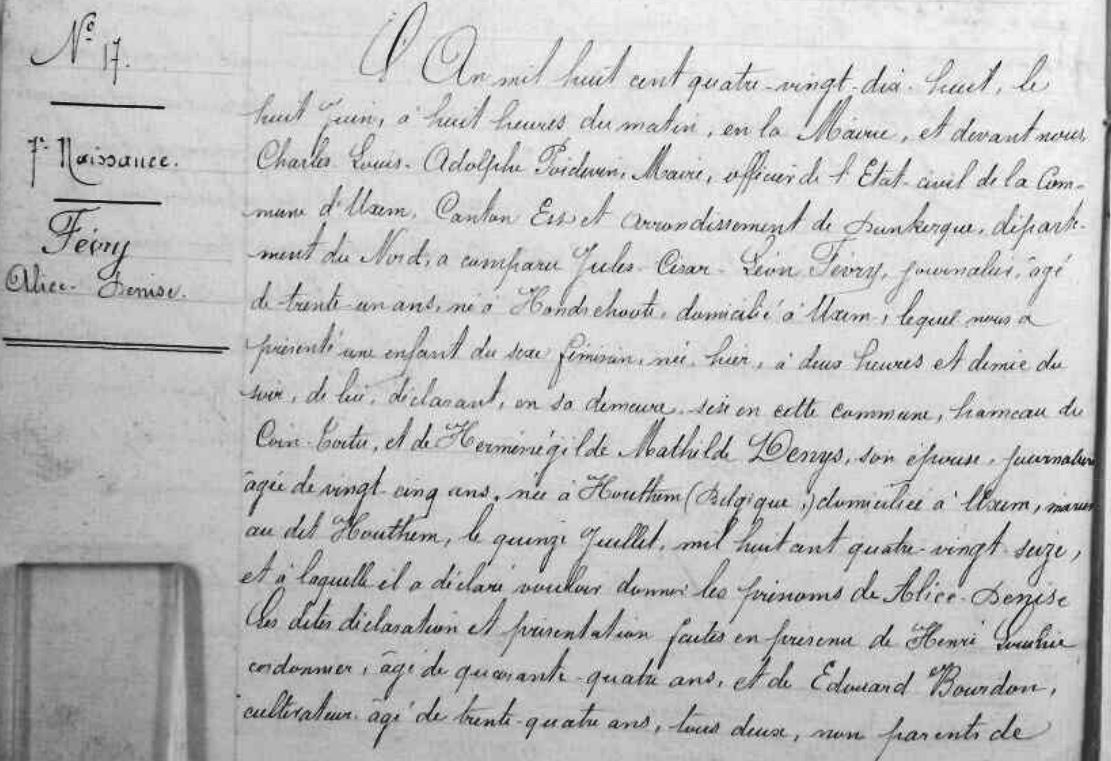 N° 17.
7e Naissance.
Févry
Alice-Denise.
L'An mil huit cent quatre-vingt-dix-huit, le
huit Juin, à huit heures du matin, en la Mairie, et devant nous
Charles-Louis-Adolphe Poidevin, Maire, officier de l'Etat-civil de la Com-
mune d'Uxem, Canton Est et arrondissement de Dunkerque, départe-
ment du Nord, a comparu Jules-César-Léon Févry, journalier, âgé
de trente-un ans, né à Hondschoote, domicilié à Uxem, lequel nous a
présenté une enfant du sexe féminin, née, hier, à deux heures et demie du
soir, de lui, déclarant, en sa demeure, sise en cette commune, hameau du
Coin-Tortu, et de Herménégilde Mathilde Denys, son épouse, journalière
âgée de vingt-cinq ans, née à Houthem (Belgique,) domiciliée à Uxem, mariés
au dit Houthem, le quinze Juillet, mil huit cent quatre-vingt-seize,
et à laquelle il a déclaré vouloir donner les prénoms de Alice-Denise
Les dites déclaration et présentation faites en présence de Henri
cordonnier, âgé de quarante-quatre ans, et de Edouard Bourdon,
cultivateur âgé de trente-quatre ans, tous deux, non parents de